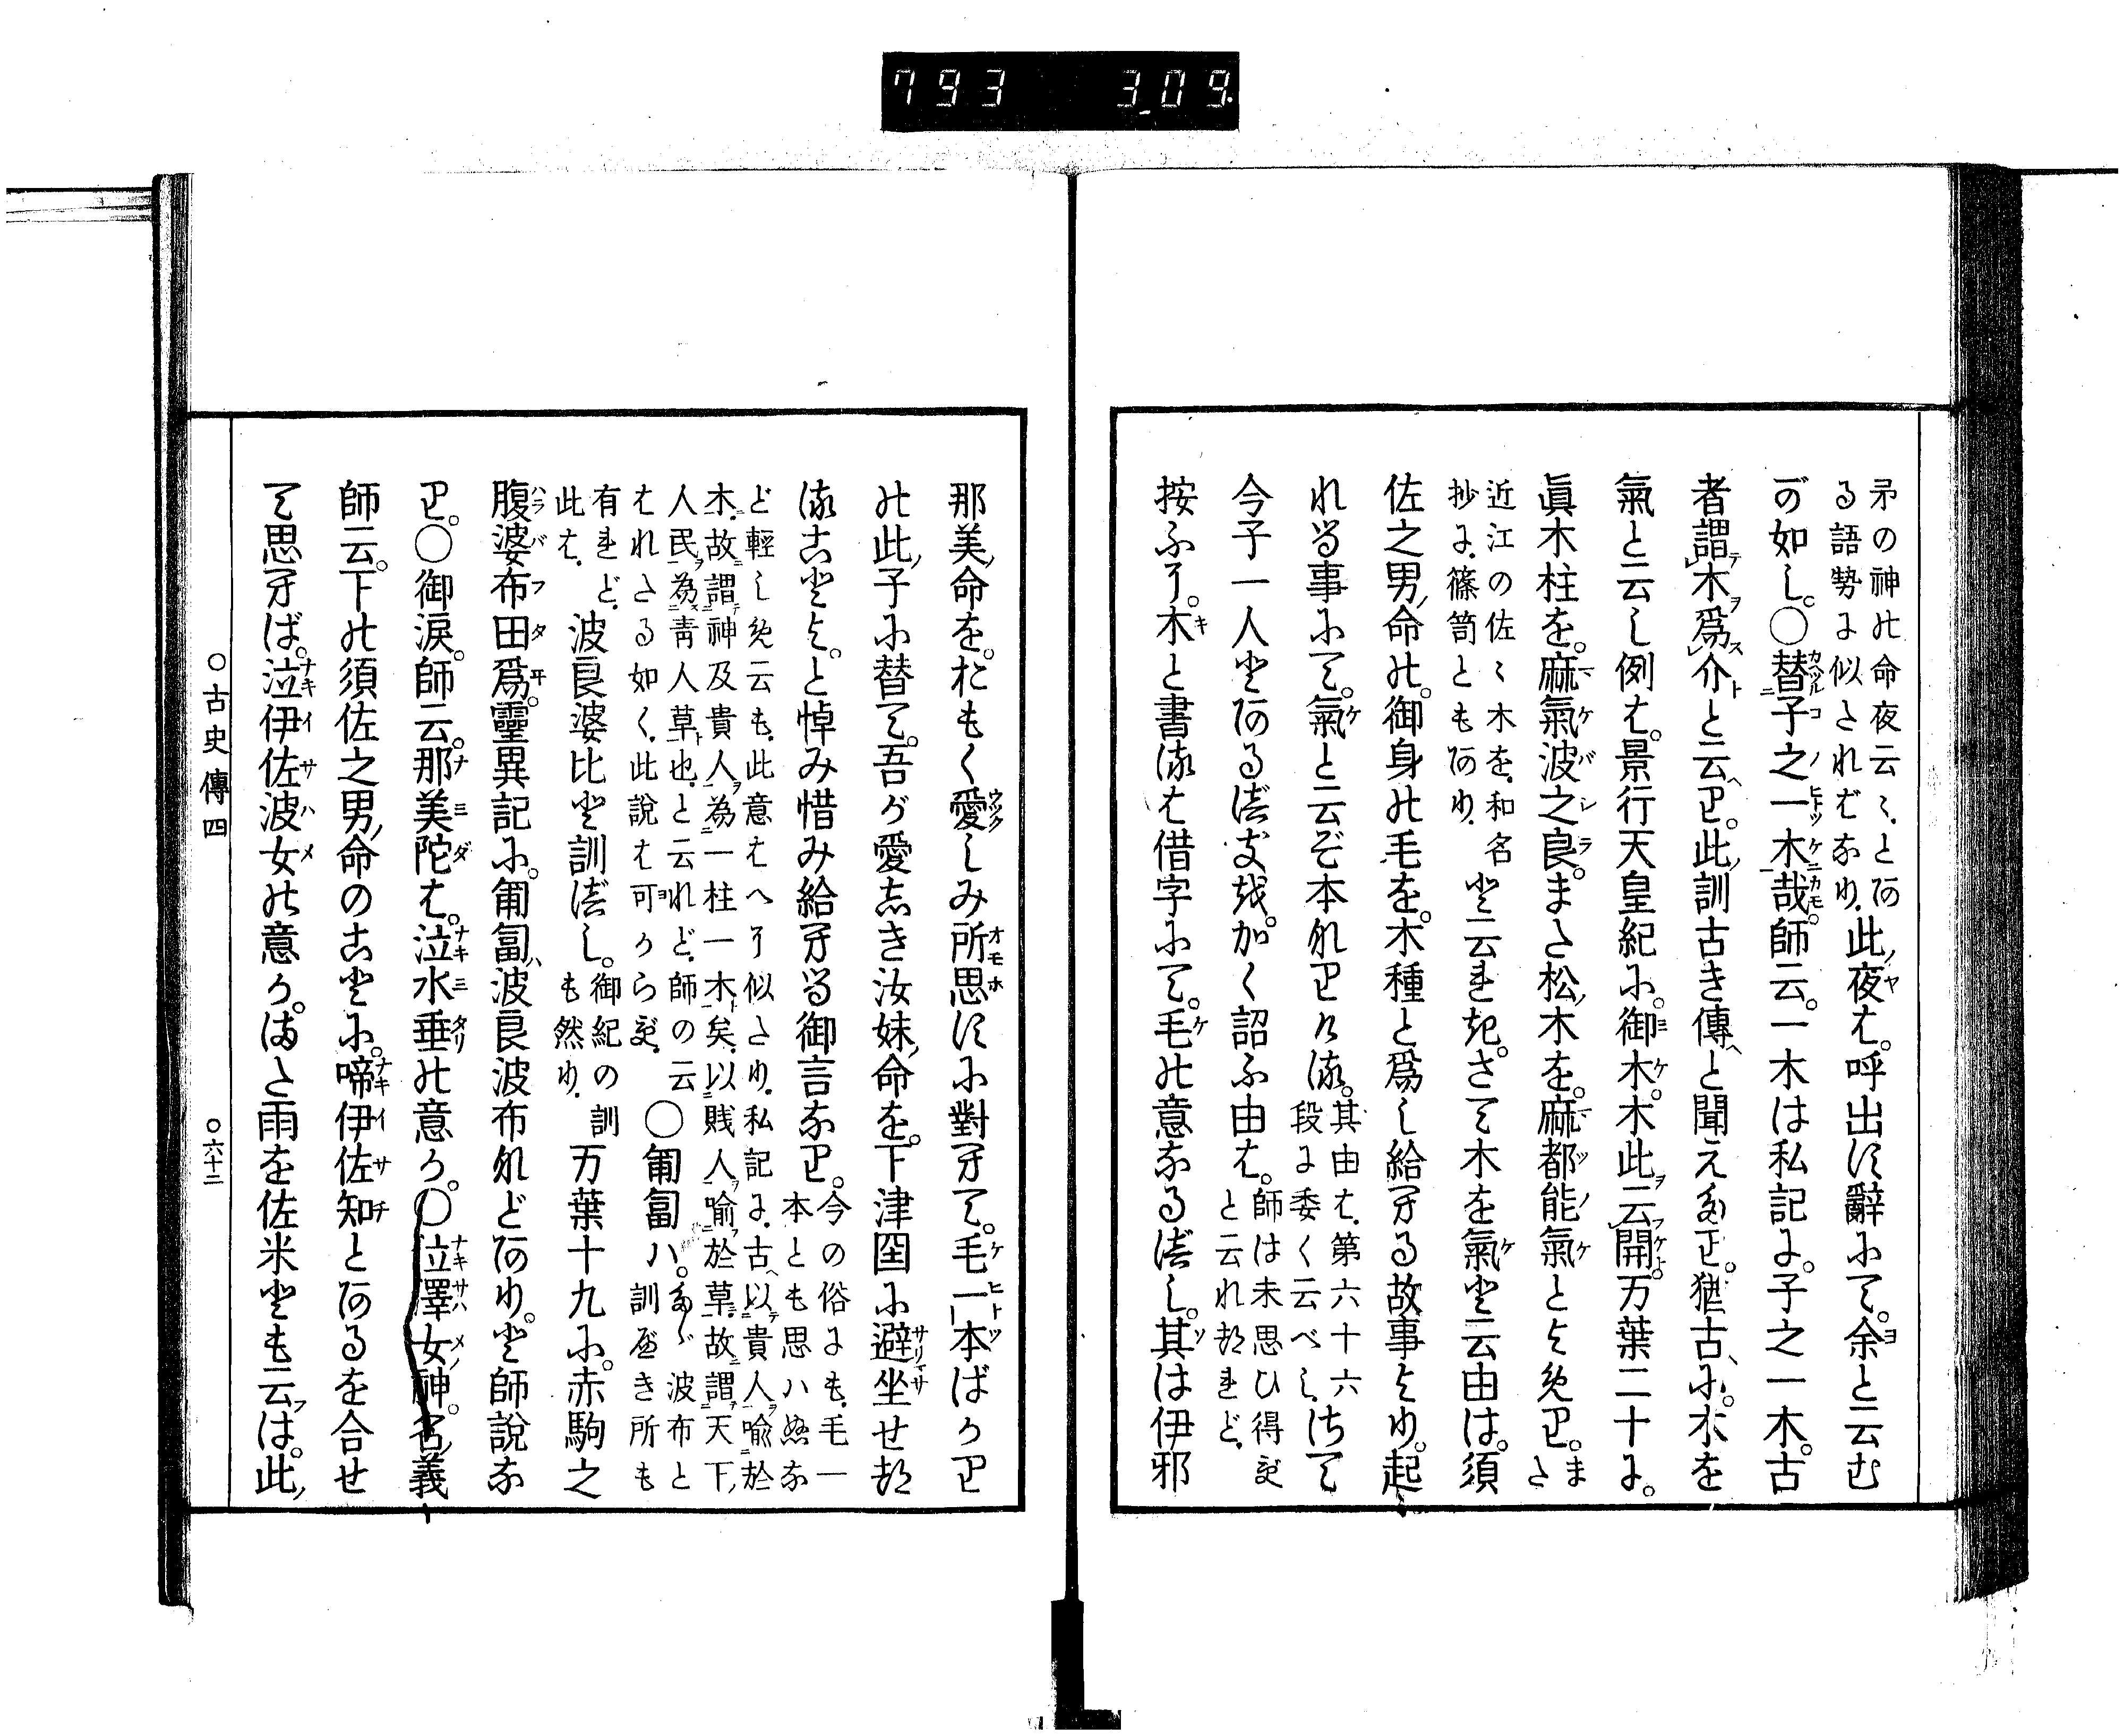 793 309
矛の神の命夜云々、とあ
る語勢に似さればなり、此ノ夜は。呼出す辭にて。余と云む
が如し。○替子之一木哉。師云。一木は私記に。子之一木。古
者謂木爲介と云へり。此ノ訓古き傳へと聞えたり。猶古ヘに。木を
氣と云し例は。景行天皇紀に。御木。木此云開。万葉二十に。
眞木柱を。麻氣波之良。また松ノ木を。麻都能氣とよめり。また
近江の佐々木を、和名
抄に、篠笥ともあり、と云れき。さて木を氣と云由は。須
佐之男ノ命の。御身の毛を。木種と爲し給へる故事より。起
れる事にて。氣と云ぞ本なりける。其由は、第六十六
段に委く云べし、さて
今子一人とあるべきを。加く詔ふ由は。師は未思ひ得ず
と云れつれど、
按ふに。木と書るは借字にて。毛の意なるべし。其は伊邪
那美ノ命を。おもく愛しみ所思すに對へて。毛一本ばかり
の此ノ子に替て。吾が愛しき汝妹ノ命を。下津国に避坐せつ
ることよ。と悼み惜み給へる御言なり。今の俗にも、毛一
本とも思ハぬな
ど輕しめ云も、此意ばへに似たり、私記に、古ヘ以貴人喩於
木、故謂神及貴人爲一柱一木矣、以賤人喩於草、故謂天下ノ
人民爲靑人草也、と云れど、師の云
はれたる如く、此說は可からず、○匍匐ハ。たゞ波布と
訓べき所も
有れど、
此は、波良婆比と訓べし。御紀の訓
も然り、万葉十九に。赤駒之
腹婆布田爲。靈異記に。匍匐ハ波良波布などあり。と師說な
り。○御涙。師云。那美陀は。泣水垂の意か。○泣澤女ノ神。名ノ義
師云。下の須佐之男ノ命のことに。啼伊佐知とあるを合せ
て思へば。泣伊佐波女の意か。また雨を佐米とも云フは。此ノ
○古史傳四 ○六十三